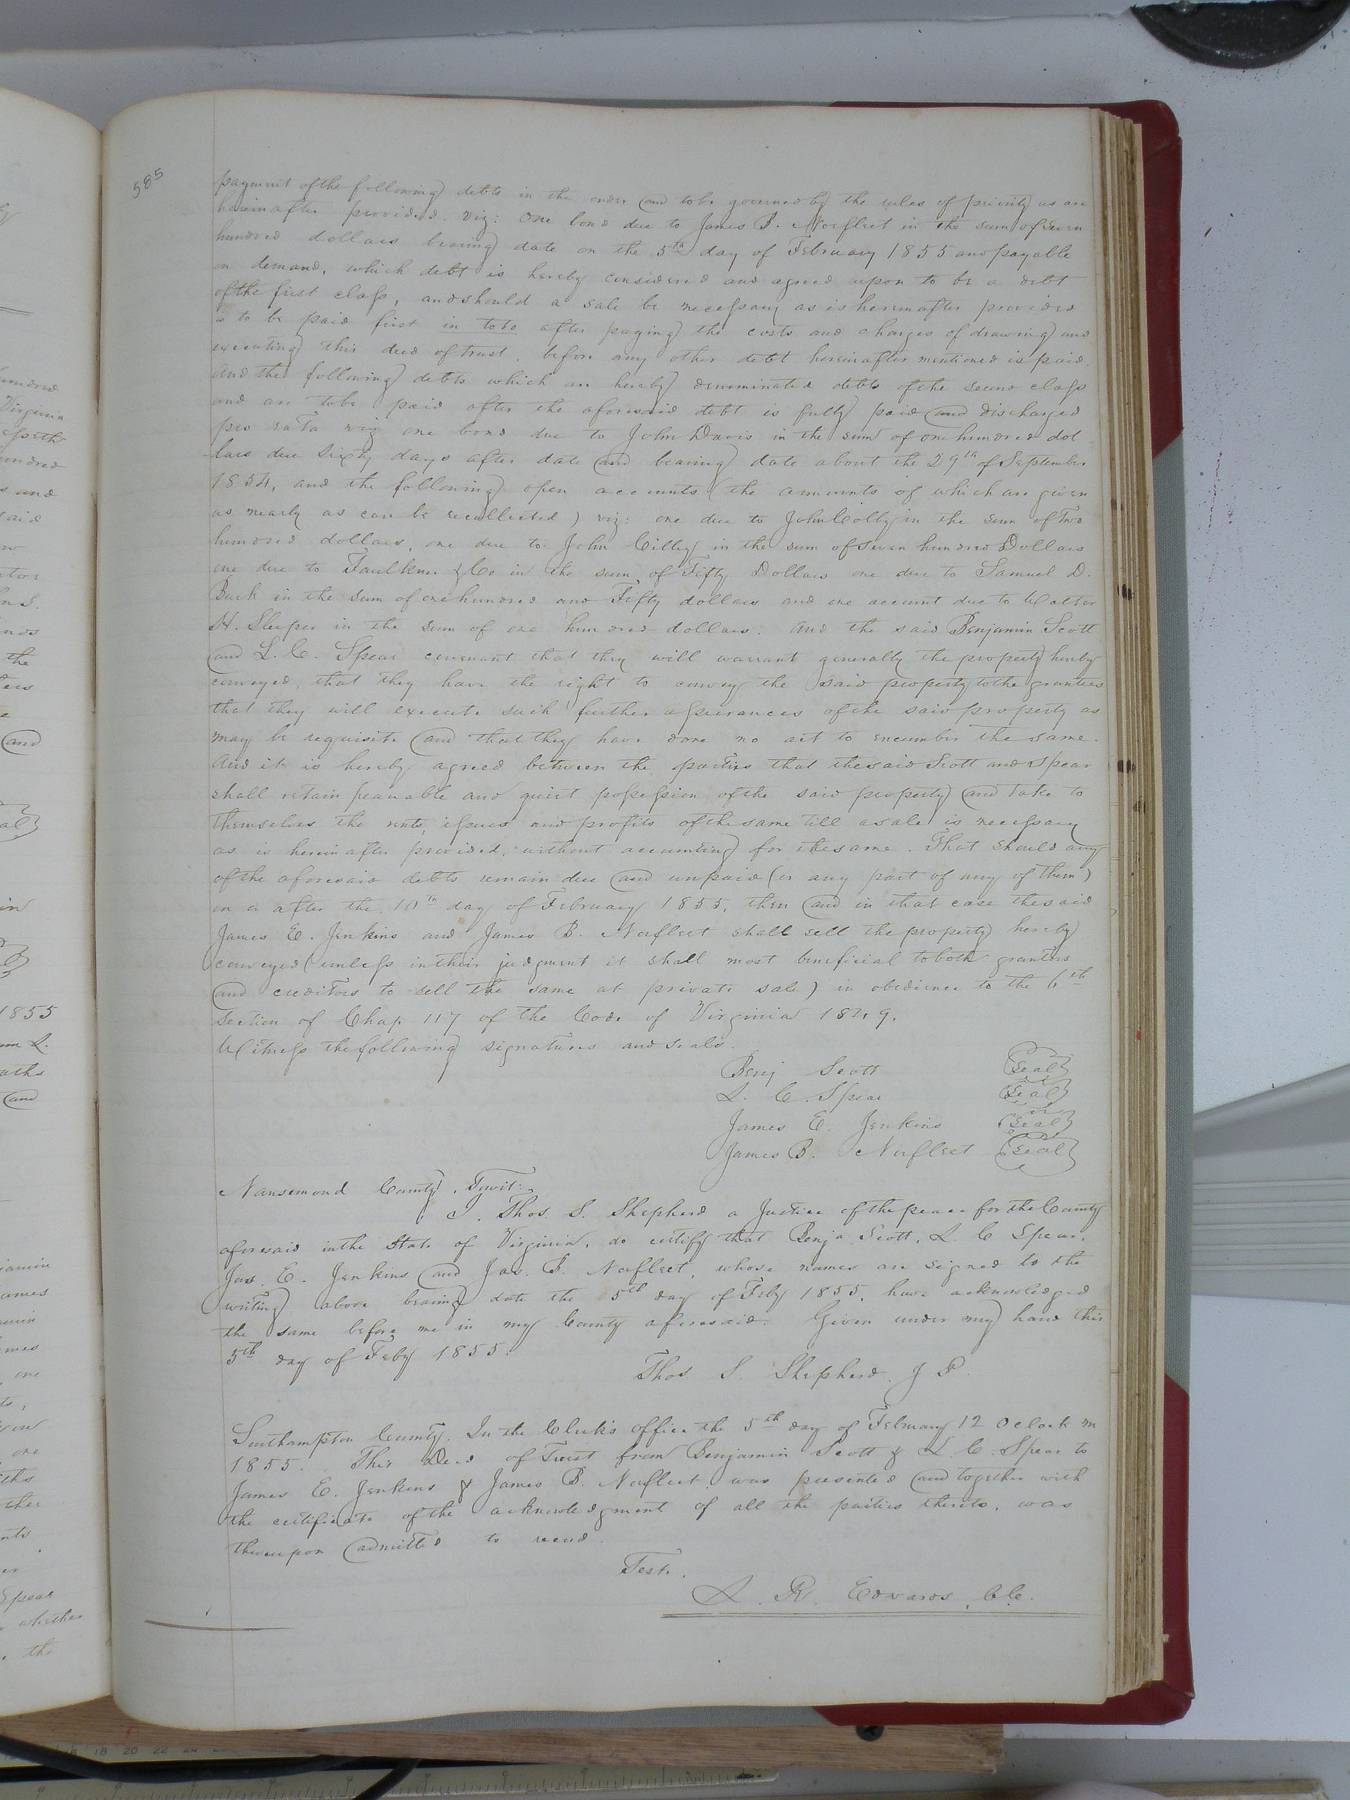 585
payment of the following debts in the order and to be governed by the rules of priority as are
hereinafter provided. viz: One bond due to James B. Norfleet in the sum of Seven
hundred dollars bearing date on the 5th day of February 1855 and payable
on demand, which debt is hereby considered and agreed upon to be a debt
of the first class, and should a sale be necessary as is hereinafter provided
is to be paid first in toto after paying the costs and charges of drawing and
executing this deed of trust, before any other debt hereinafter mentioned is paid.
And the following debts which are hereby denominated debts of the second class
and are to be paid after the aforesaid debt is fully paid and discharged
pro rata viz one bond due to John Davis in the sum of one hundred dol
lars due Sixty days after date and bearing date about the 29th of September
1854, and the following open accounts (the amounts of which are given
as nearly as can be recollected) viz: one due to John Colly in the sum of Two
hundred dollars, one due to John Cilley in the sum of Seven hundred Dollars
one due to Faulkner & Co in the sum of Fifty Dollars one due to Samuel D.
Buck in the sum of one hundred and Fifty dollars and one account due to Walter
H. Sleeper in the sum of one hundred dollars. And the said Benjamin Scott
and L. C. Spear covenant that they will warrant generally the property hereby
conveyed, that they have the right to convey the said property to the grantees
that they will execute such further assurances of the said property as
may be requisite and that they have done no act to encumber the same.
And it is hereby agreed between the parties that the said Scott and Spear
shall retain peaceable and quiet possession of the said property and take to
themselves the rents, issues and profits of the same till a sale is necessary
as is herein after provided, without accounting for the same. That should any
of the aforesaid debts remain due and unpaid (or any part of any of them)
on or after the 10th day of February 1855, then and in that case the said
James E. Jenkins and James B. Norfleet shall sell the property hereby
conveyed (unless in their judgment it shall most beneficial to both grantors
and creditors to sell the same at private sale) in obedience to the 6th
Section of Chap. 117 of the Code of Virginia 1849.
Witness the following signatures and seals.
Benj Scott Seal
L. C. Spear Seal
James E. Jenkins Seal
James B. Norfleet Seal
Nansemond County, Towit:
I. Thos. S. Shepherd a Justice of the peace for the County
aforesaid in the State of Virginia, do certify that Benja Scott, L. C Spear,
Jas. E. Jenkins and Jas. B. Norfleet, whose names are signed to the
writing above bearing date the 5th day of Feby 1855, have acknowledged
the same before me in my County aforesaid. Given under my hand this
5th day of Feby 1855.
Thos. S. Shepherd. J P.
Southampton County. In the Clerk's office the 5th day of February 12 Oclock m
1855. This Deed of Trust from Benjamin Scott & L. C. Spear to
James E. Jenkins & James B. Norfleet was presented and together with
the certificate of the acknowledgment of all the parties thereto, was
thereupon admitted to record.
Test.
L. R. Edwards, C.C.